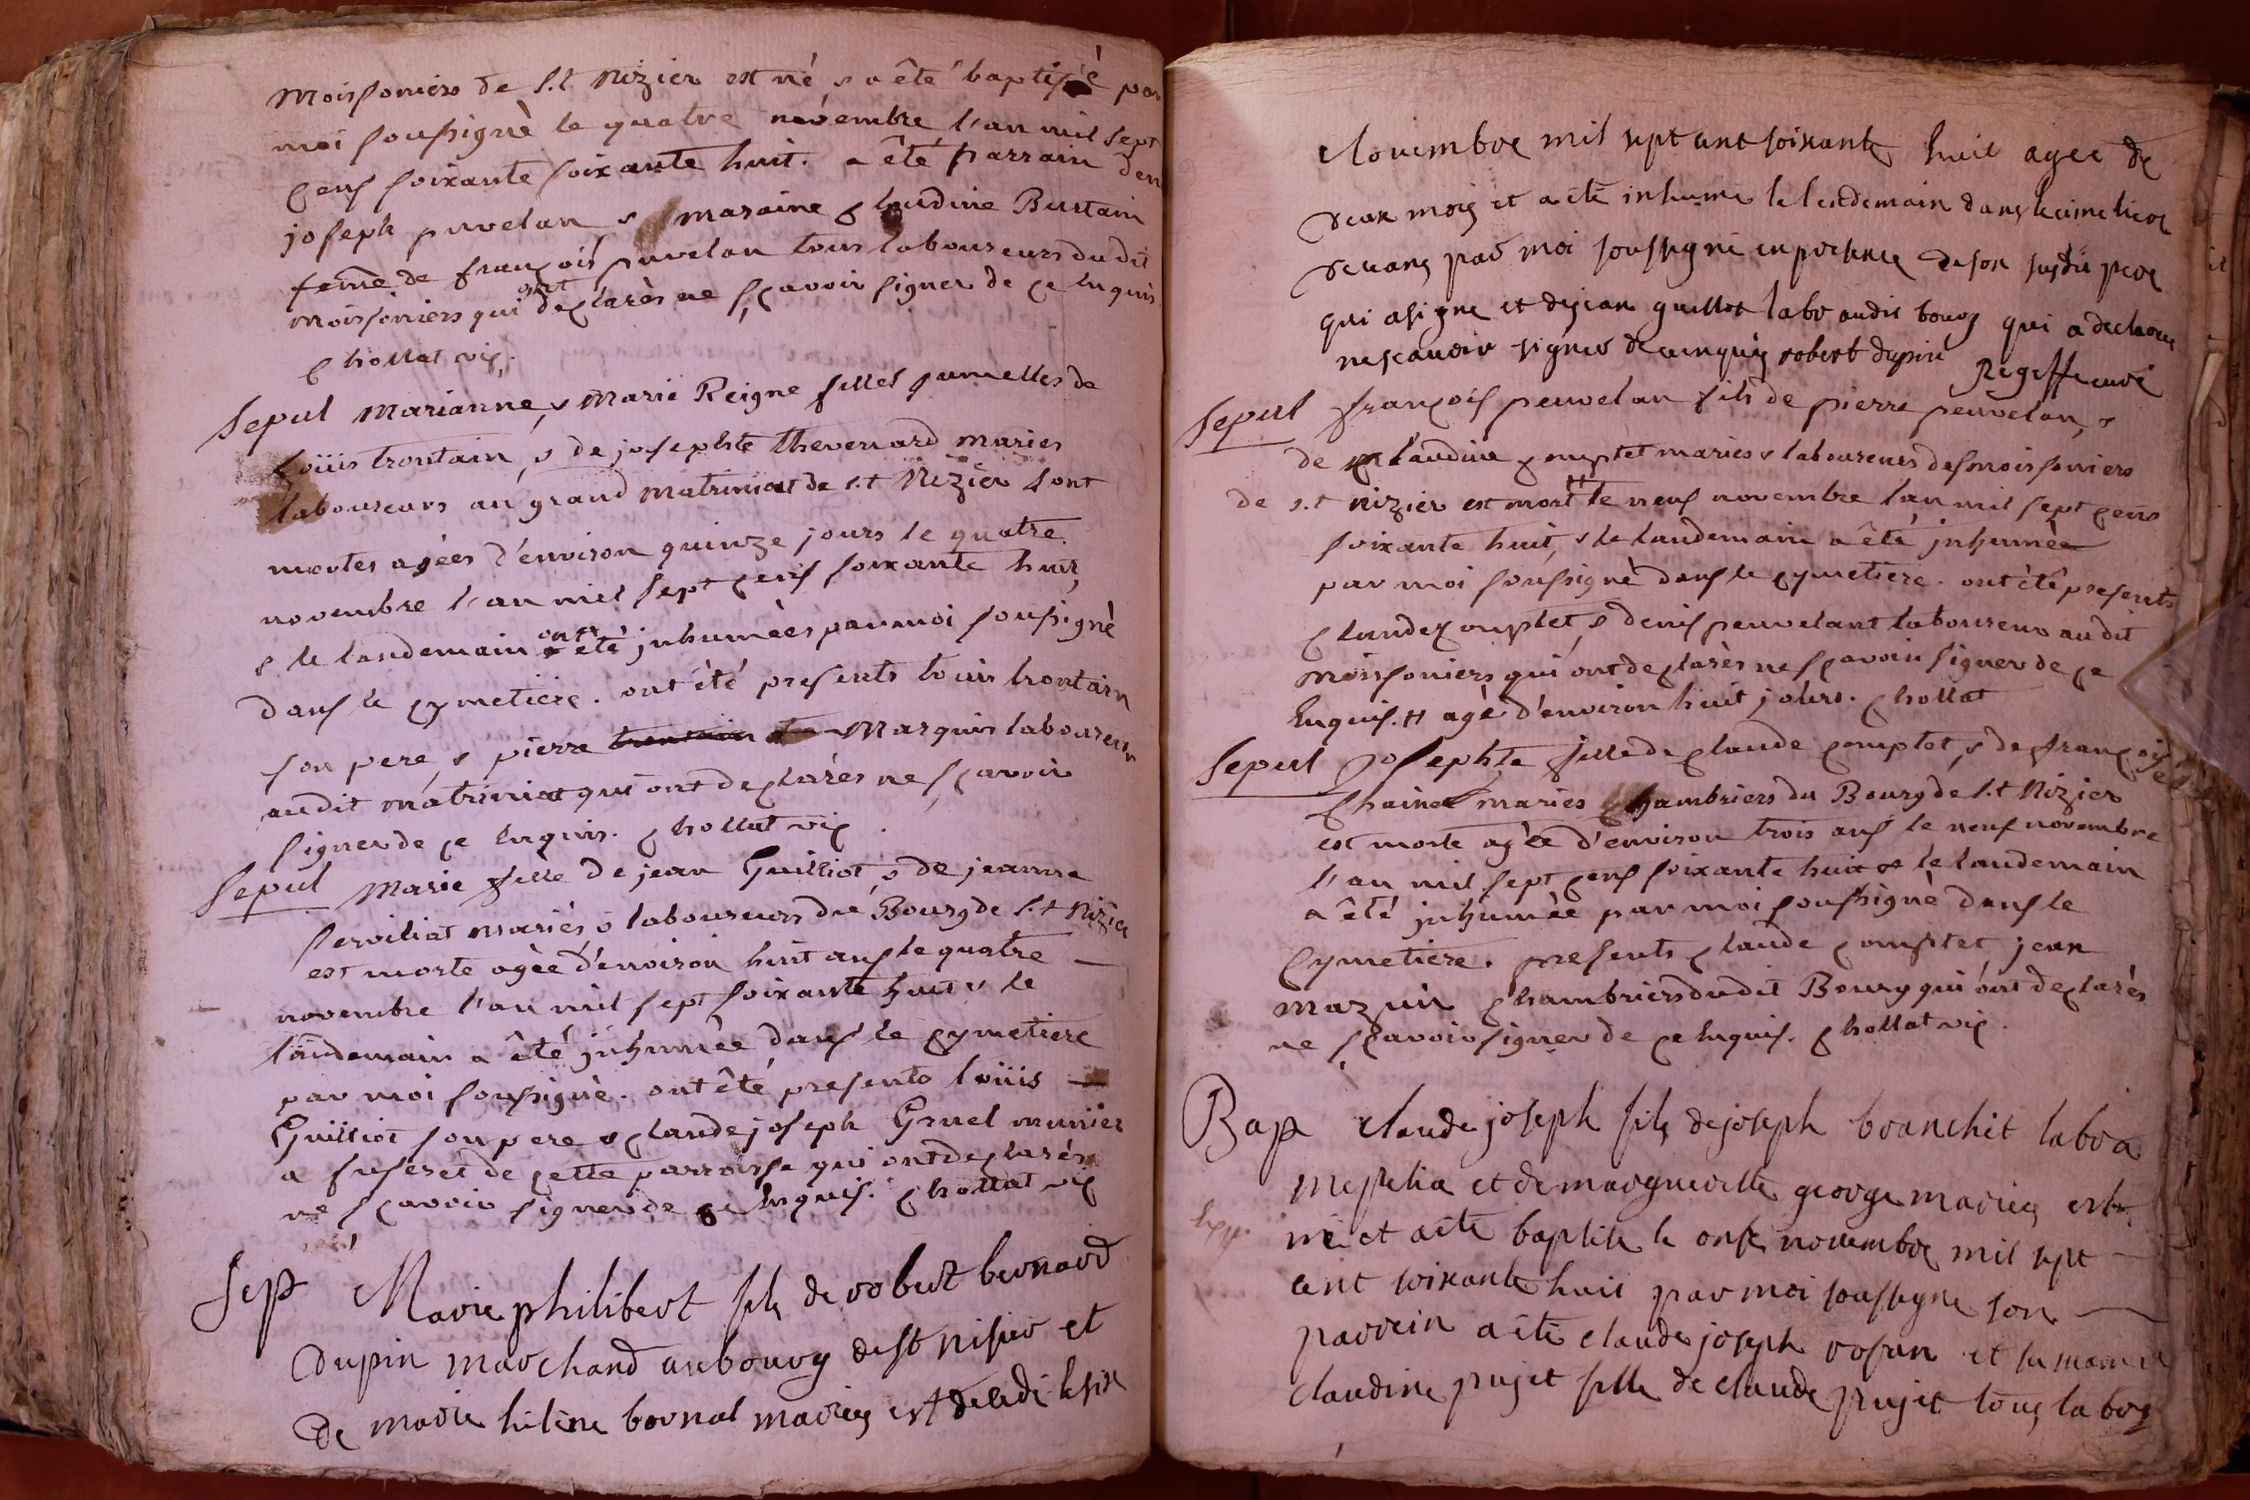 moissoniers de s.t Nizier est né, & a êté baptisé par
moi soussignè le quatre novembre l'an mil sept
cens soixante soixante huit. a êté parrain deni
joseph puvelan & maraine claudine Burtain
femme de françois puvelan tous laboureurs du dit
moissoniers qui ont declarès ne sçavoir signer de ce enquis
chollat vic.
Sepul Marianne, & Marie Reigne filles jumelles de
Loüis trontain, & de josephte thevenard maries
laboureurs au grand Matriniat de s.t Nizier sont
mortes agèes d'environ quinze jours le quatre
novembre l'an mil sept cens soixante huit,
& le landemain ont êté inhumèes par moi soussigné
dans le cymetiere. ont été presents louis trontain
son pere, & pierre Marquis laboureurs
audit matriniat qui ont declarès ne sçavoir
signer de ce enquis. chollat vic
Sepul Marie fille de jean Guilliot, & de jeanne
serviliat mariés & laboureurs du Bourg de s.t Nizier
est morte agèe d'environ huit ans le quatre
novembre l'an mil sept soixante huit & le
landemain a êté inhumèe dans le cymetiere
par moi soussigné. ont êté presents loüis
Guilliot son pere & claude joseph Gruel munier
a fuseret de cette parroisse qui ont declarés
ne sçavoir signer de ce enquis. chollat vic
Sep Marie philibert fils de robert bernard
Dupin marchand au bourg de st nisier et
De marie hélène bornal mariez est décédé le six
Novembre mil sept cent soixante huit agee de
deux mois et a été inhumé le lendemain dans le cimetiere
ceans par moi soussigné en presence de son susdit pere
qui a signe et de jean guillot labr audit bourg qui a declaré
ne scavoir signer de ce enquis robert dupin
Regeffe curé
Sepul françois peuvelan fils de pierre peuvelan, &
de claudine comptet maries & laboureurs des moissoniers
de s.t Nizier est mort # le neuf novembre l'an mil sept cens
soixante huit, & le landemain a êté inhumèe
par moi soussignè dans le cymetiere. ont êté presents
claude comptet, & denis peuvelant laboureurs audit
moissoniers qui ont declarès ne sçavoir signer de ce
enquis. # agé d'environ huit jours. chollat
Sepul josephte fille de claude comptet, & de françoise
chainel maries chambriers du Bourg de s.t Nizier
est morte agèe d'environ trois ans le neuf novembre
l'an mil sept cens soixante huit & le landemain
a êté inhumèe par moi soussignè dans le
cymetiere. presents claude comptet, jean
mazuir chambriers dudit Bourg qui ont declarès
ne sçavoir signer de ce enquis. chollat vic.
Bap claude joseph fils de joseph branchit labr a
mespelia et de marguerite george mariez est
né et a été baptisé le onse novembre mil sept
cent soixante huit par moi soussigne son
parrein a été claude joseph rosan et sa mar
claudine pujet fille de claude pujet tous labrs